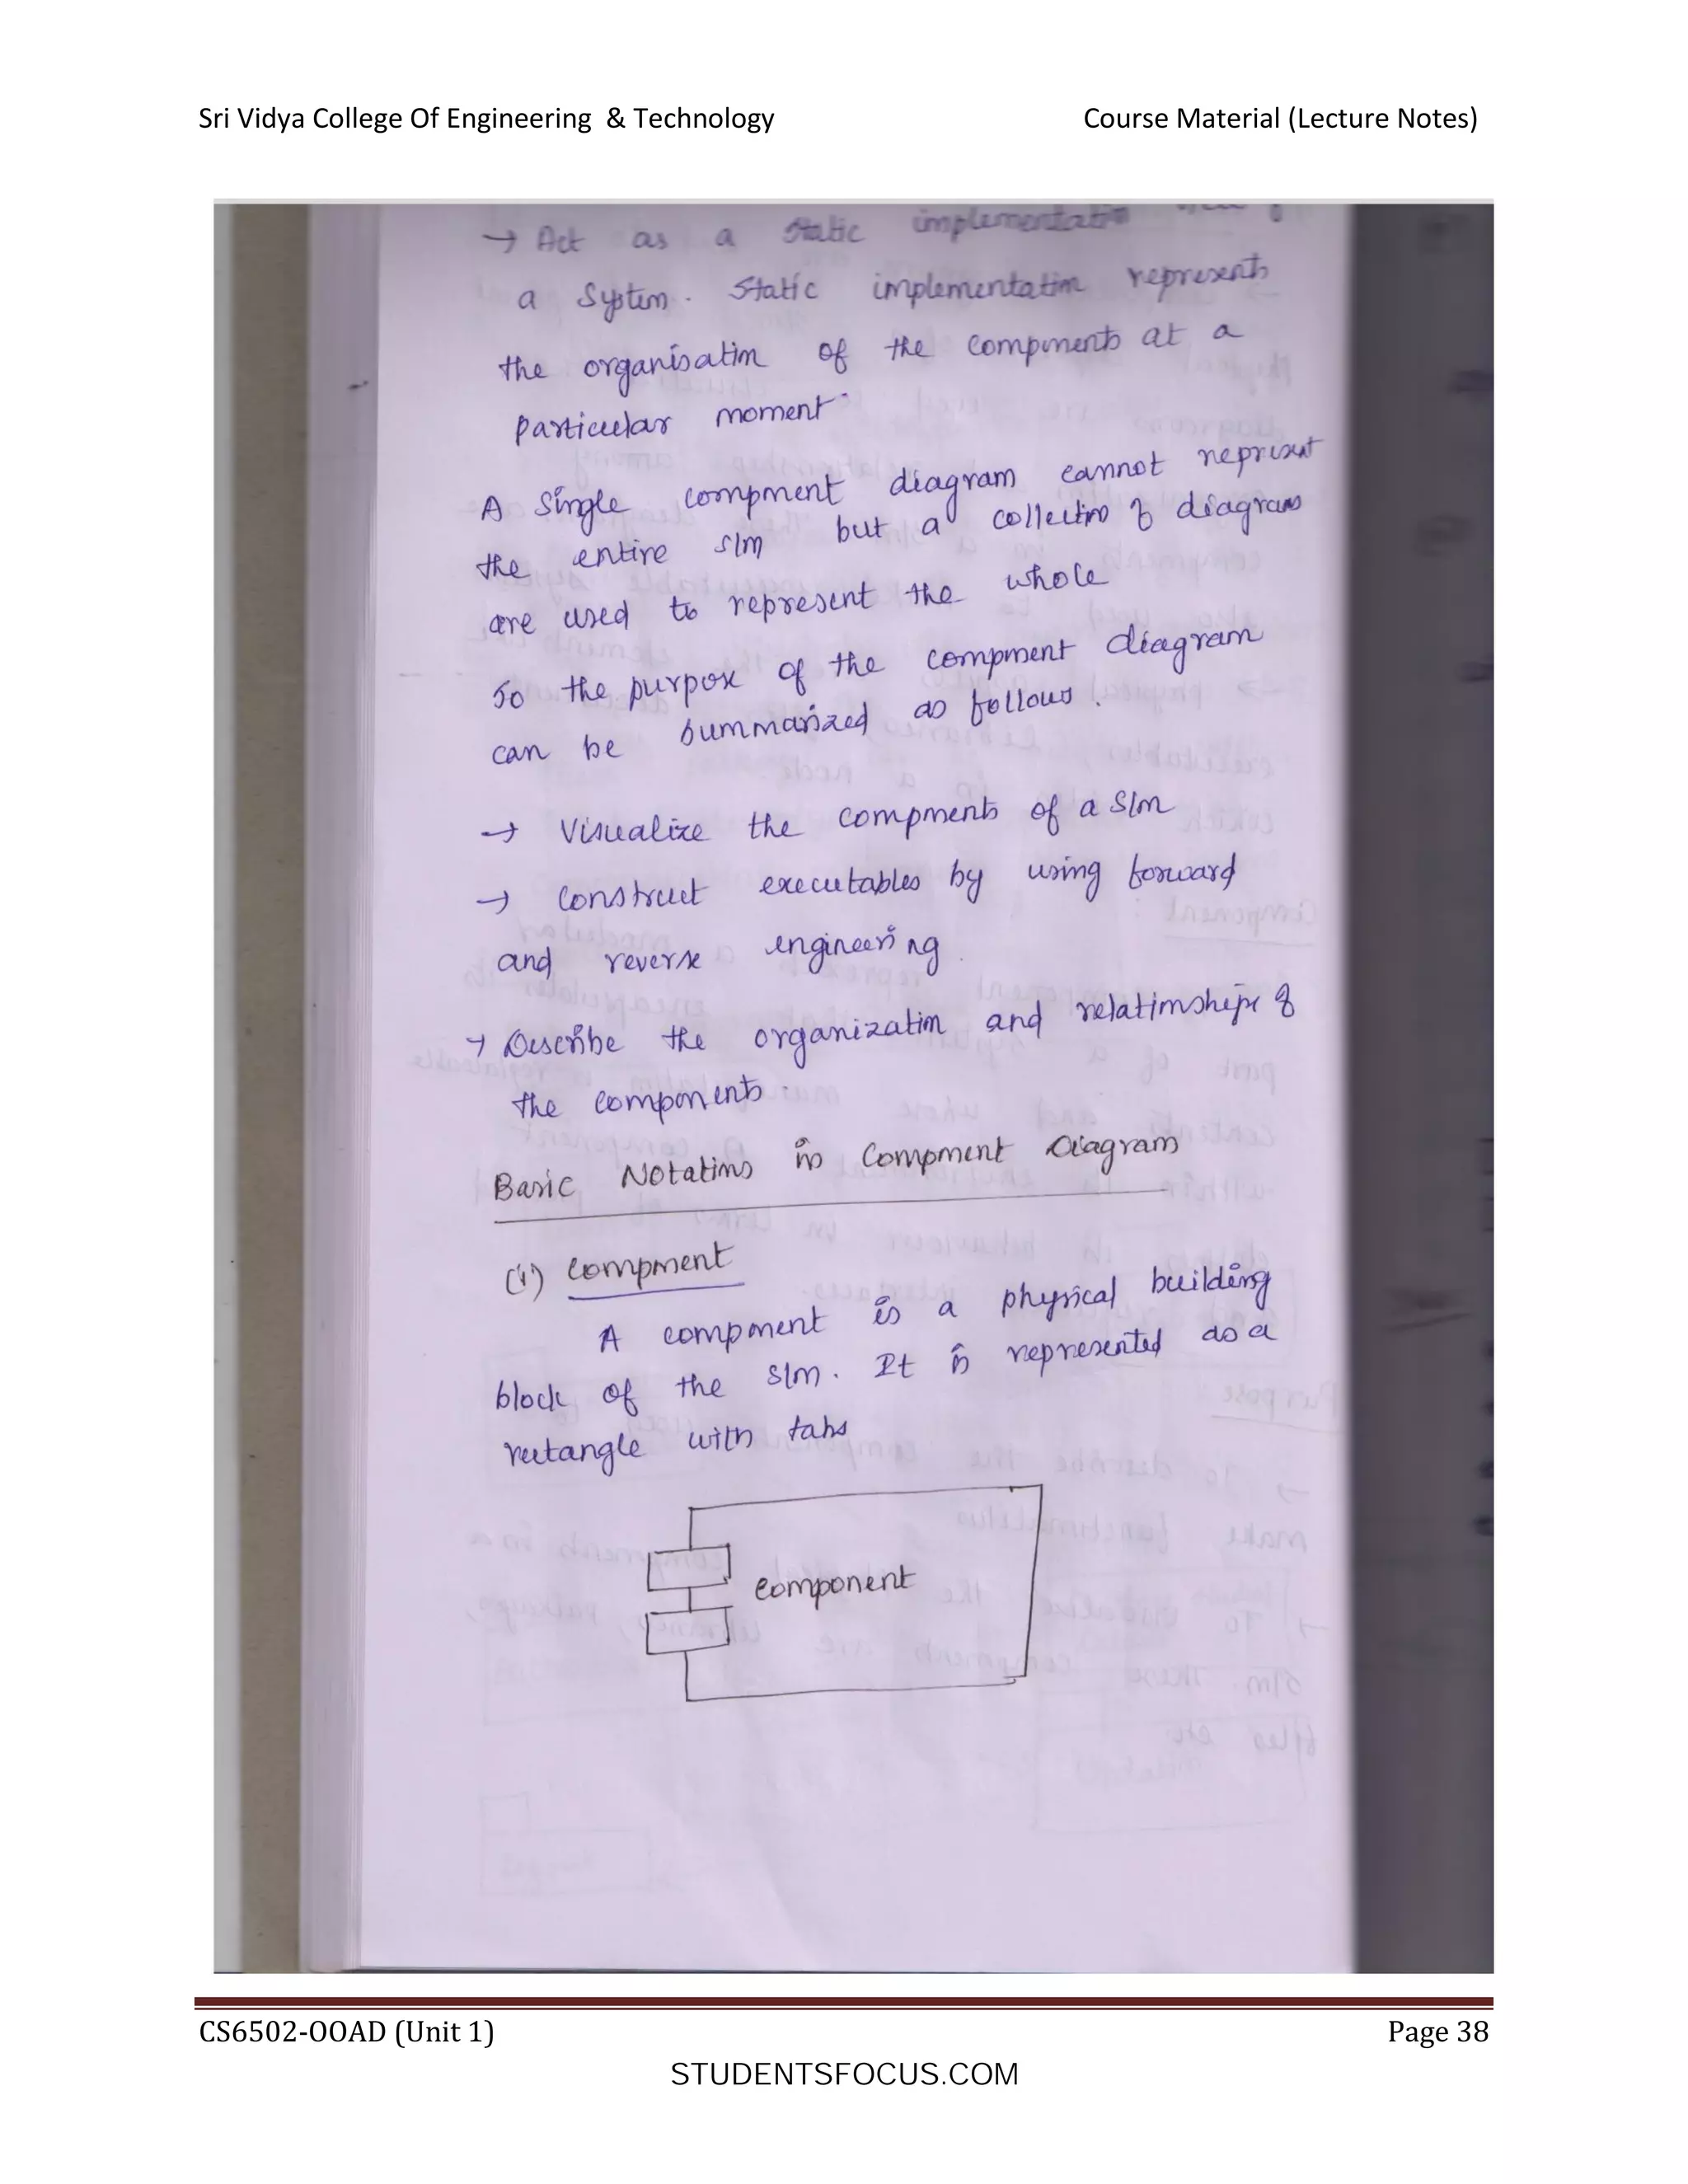 Sri Vidya College Of Engineering & Technology Course Material (Lecture Notes)
→ Act as a static implementation view of
a System. Static implementation represents
the organisation of the components at a
particular moment.
A single component diagram cannot represent
the entire s/m but a collection of diagrams
are used to represent the whole
So the purpose of the component diagram
can be summarized as follows.
→ Visualize the components of a s/m
→ Construct executables by using forward
and reverse engineering.
→ Describe the organization and relationships of
the components.
Basic Notations in Component Diagram
(i) Component
A component is a physical building
block of the s/m. It is represented as a
rectangle with tabs
component
CS6502-OOAD (Unit 1) Page 38
STUDENTSFOCUS.COM